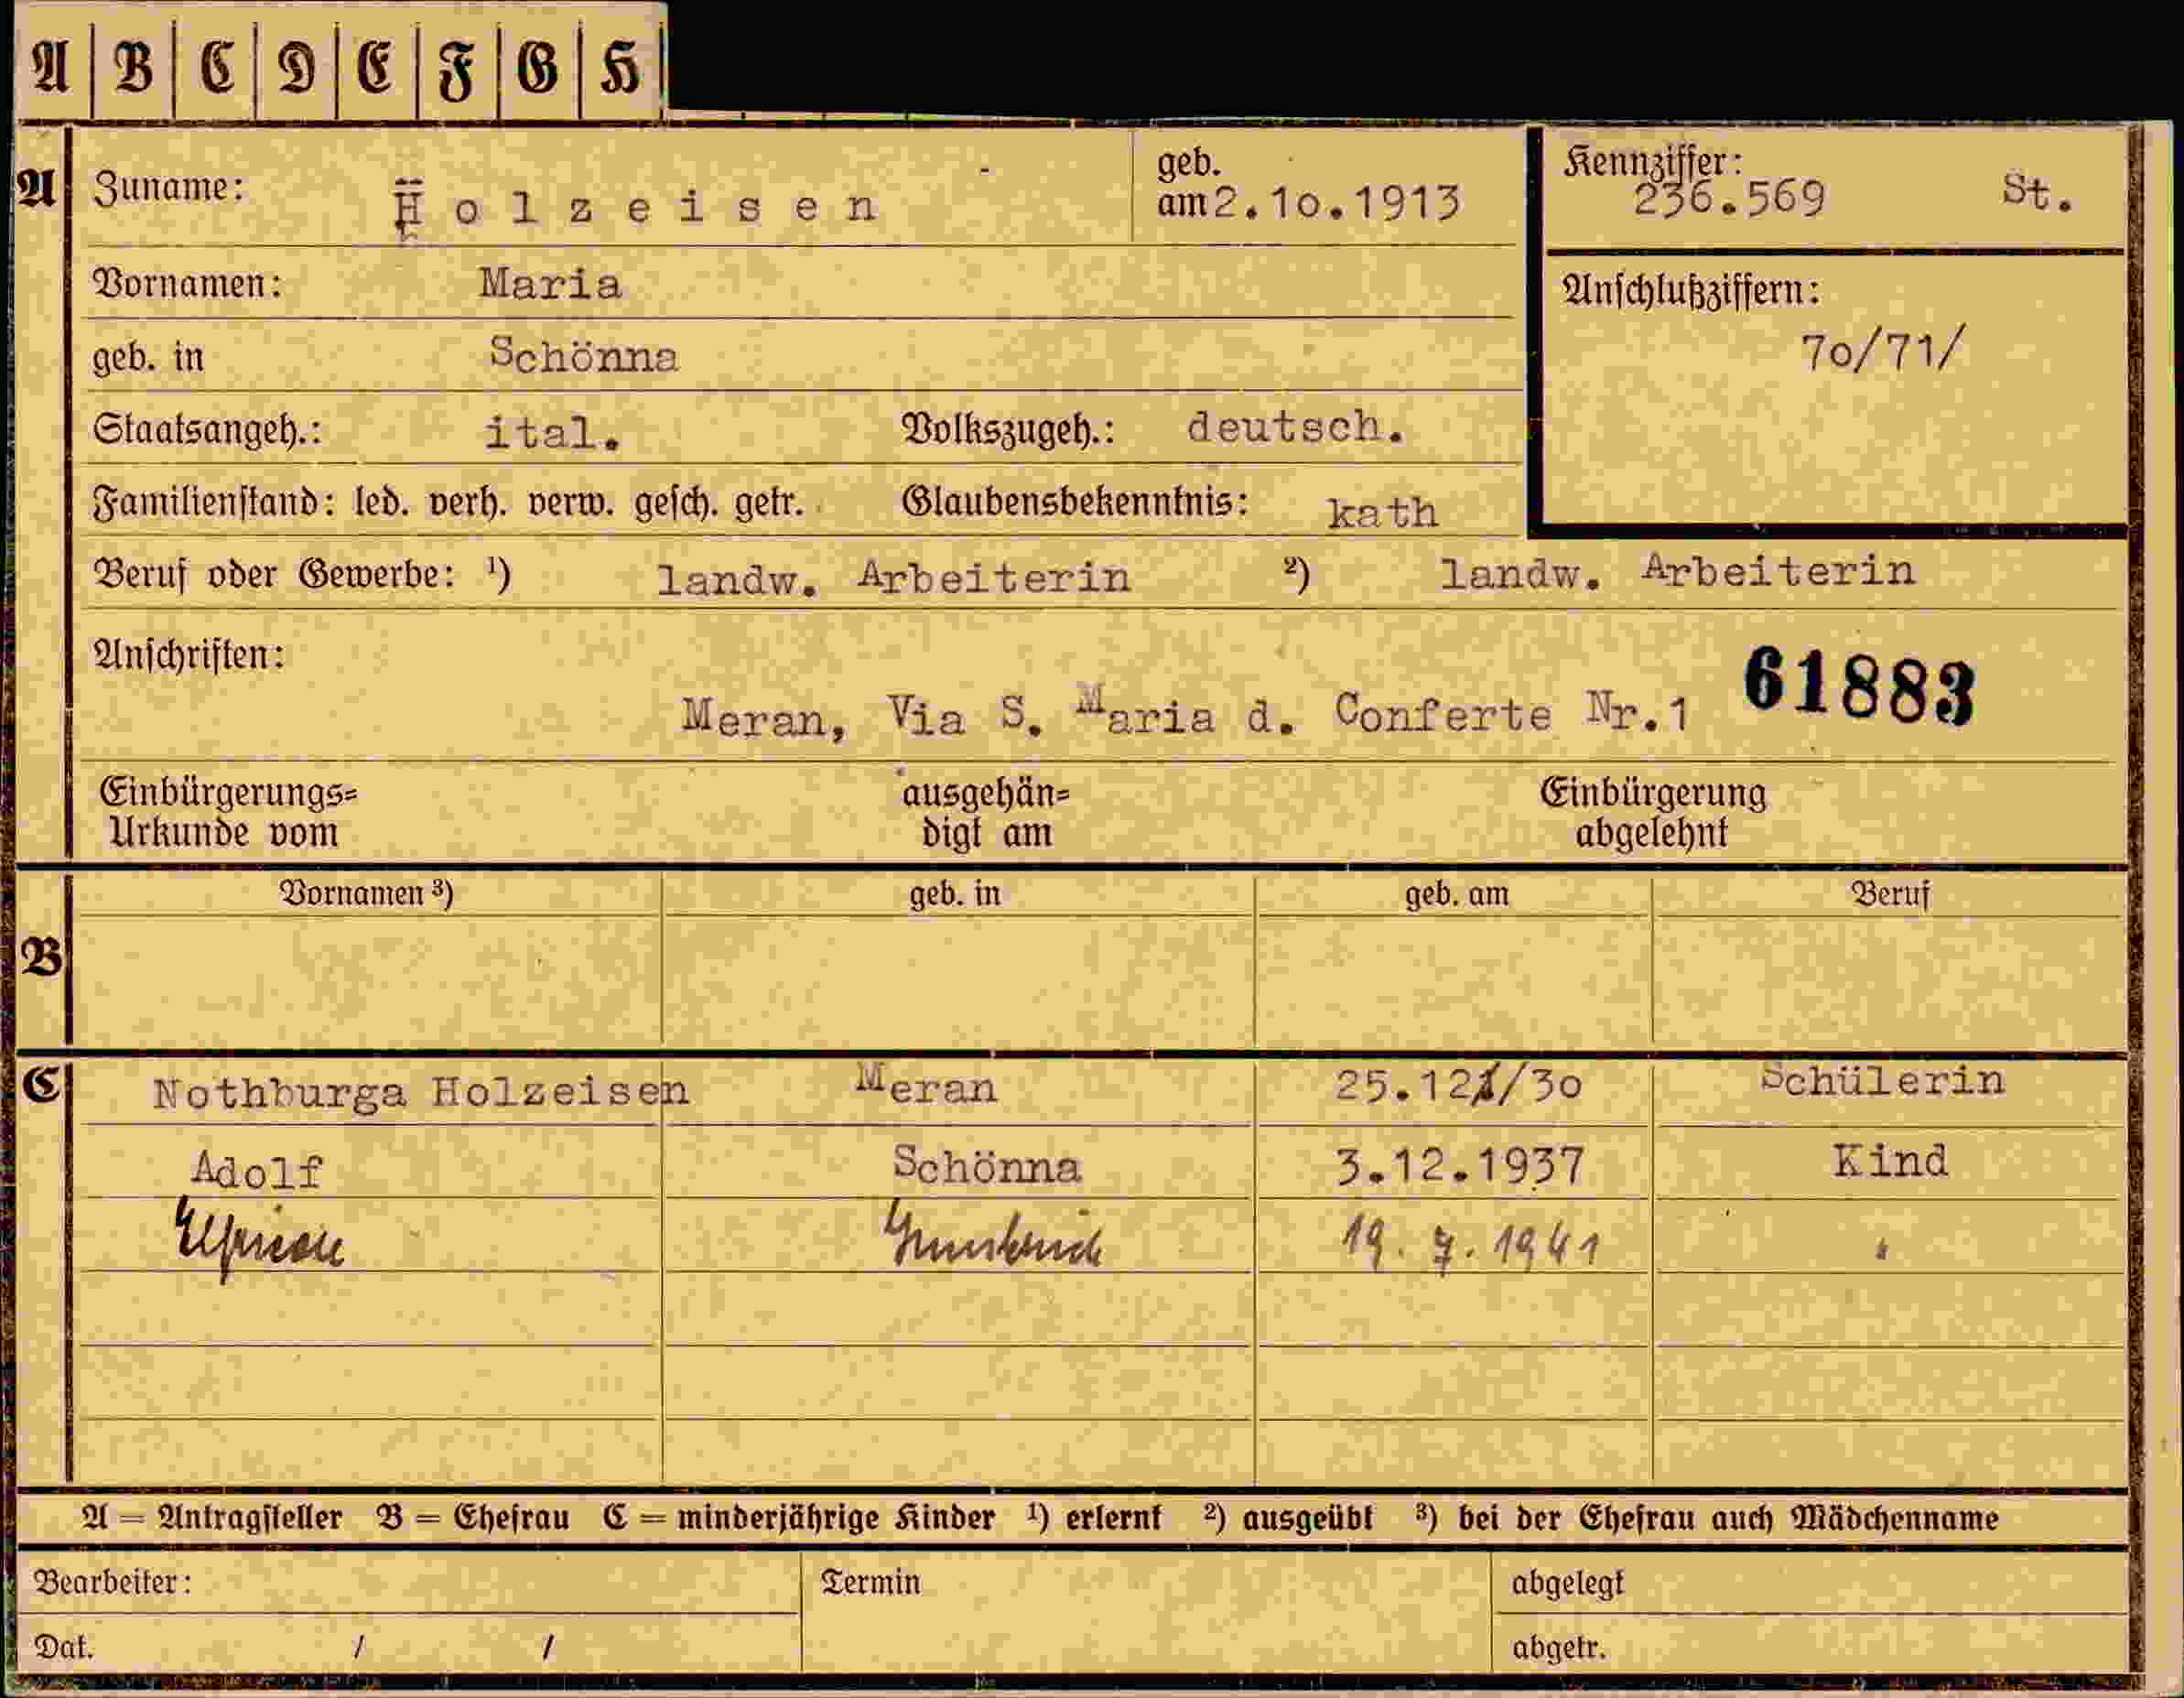 A B C D E F G H
A Zuname: Holzeisen geb. am 2.10.1913 Kennziffer: 236.569 St.
Vornamen: Maria
Anschlußziffern: 70/71/
geb. in Schönna
Staatsangeh.: ital. Volkszugeh.: deutsch.
Familienstand: led. verh. verw. gesch. getr. Glaubensbekenntnis: kath
Beruf oder Gewerbe: ¹) landw. Arbeiterin ²) landw. Arbeiterin
Anschriften:
Meran, Via S. Maria d. Conferte Nr.1 61883
Einbürgerungs= ausgehän= Einbürgerung
Urkunde vom digt am abgelehnt
Vornamen ³) geb. in geb. am Beruf
B
C Nothburga Holzeisen Meran 25.12/30 Schülerin
Adolf Schönna 3.12.1937 Kind
Elfriede Innsbruck 19. 7. 1941 "
A = Antragsteller B = Ehefrau C = minderjährige Kinder ¹) erlernt ²) ausgeübt ³) bei der Ehefrau auch Mädchenname
Bearbeiter: Termin abgelegt
Dat. / / abgetr.